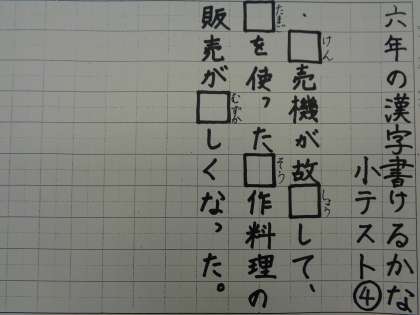 六年の漢字書けるかな
小テスト④
・□けん売機が故□しょうして、
□たまごを使った□そう作料理の
販売が□むずかしくなった。